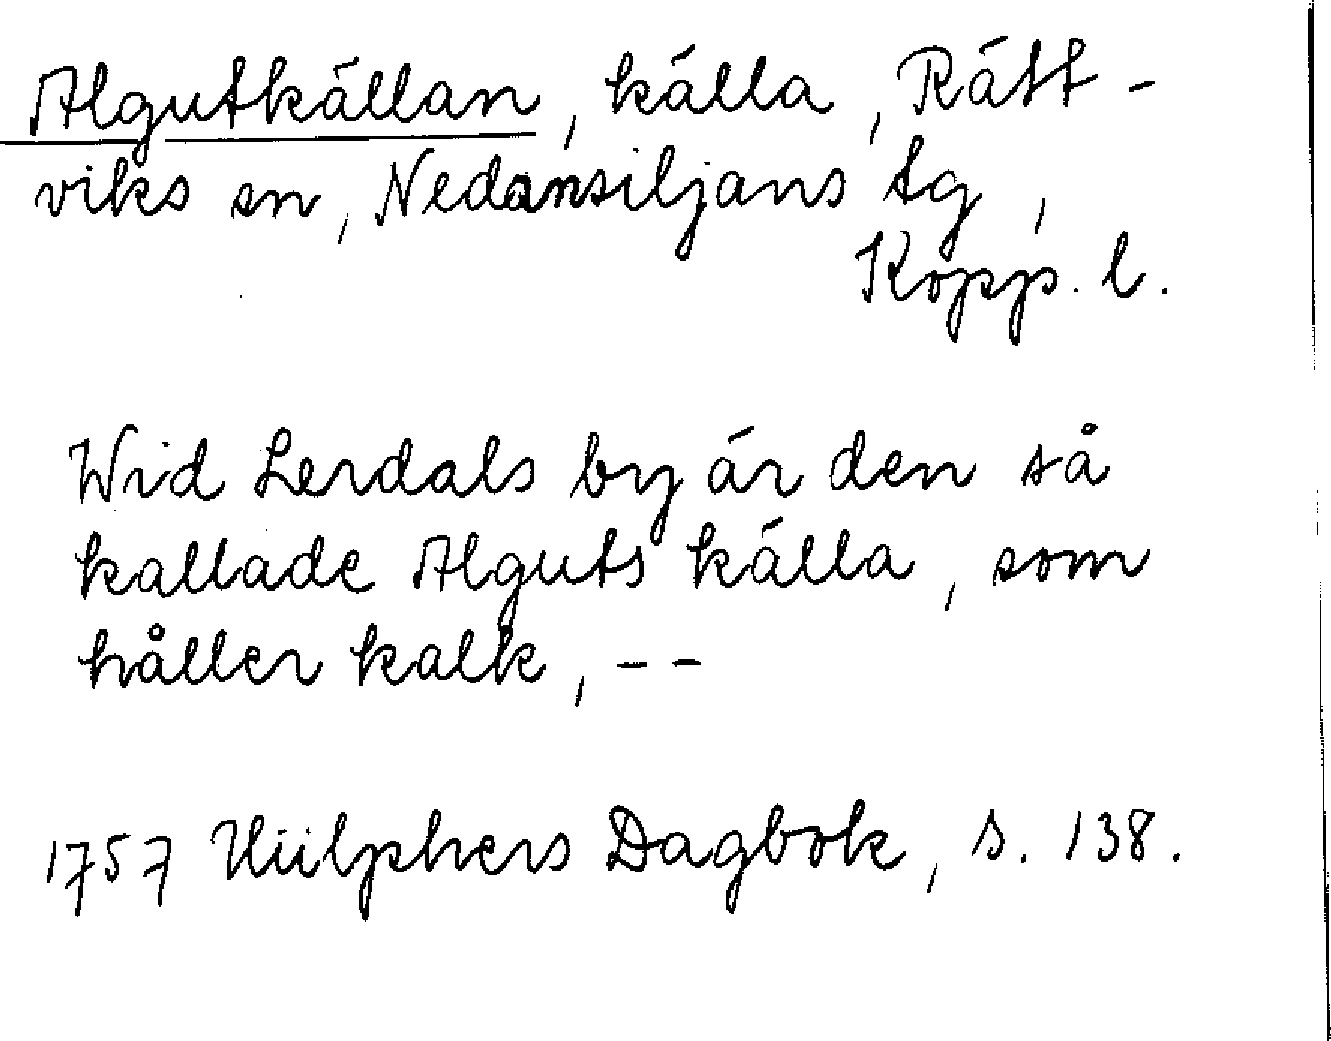 Algutkällan, källa, Rätt-
viks sn, Nedansiljans tg,
Kopp. l.
Wid Lerdals by är den så
kallade Alguts källa, som
håller kalk, --
1757 Hülphers Dagbok, s. 138.